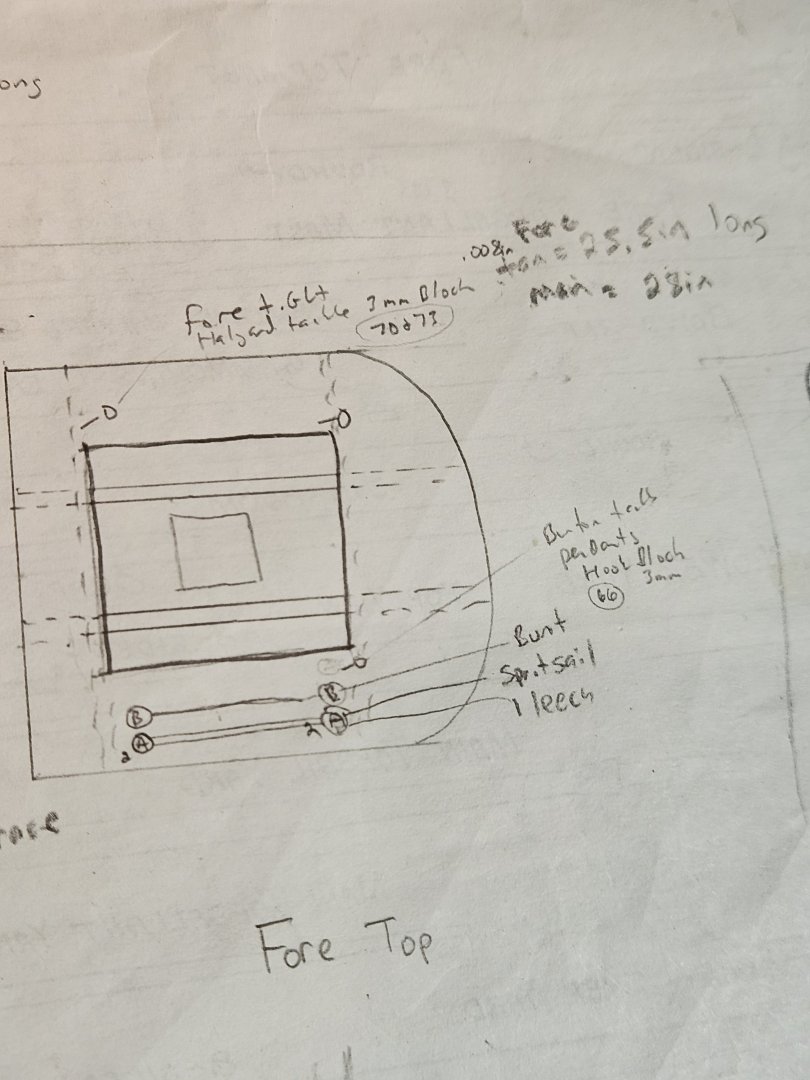 ong
.008in Fore
= 25.5in long
main = 28in
Fore t.Glt 3mm Block
Halyard tackle 70&73
Burton
pendants
Hook Block
3mm
66
Bunt
Spritsail
1 leech
B B
2 A 2 A
Fore Top